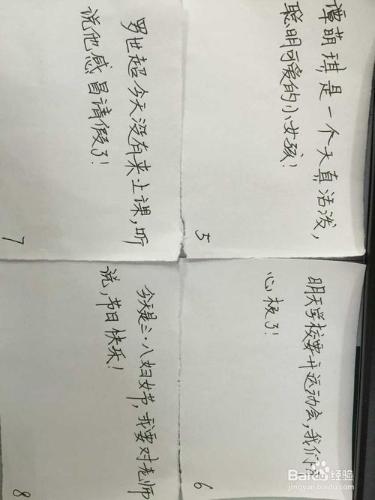 谭萌琪是一个天真活泼,
聪明可爱的小女孩!
5
明天学校要开运动会,我们开
心极了!
6
罗世超今天没有来上课,听
说他感冒请假了!
7
今天是三·八妇女节,我要对老师
说,节日快乐!
8
Baidu 经验
jingyan.baidu.com